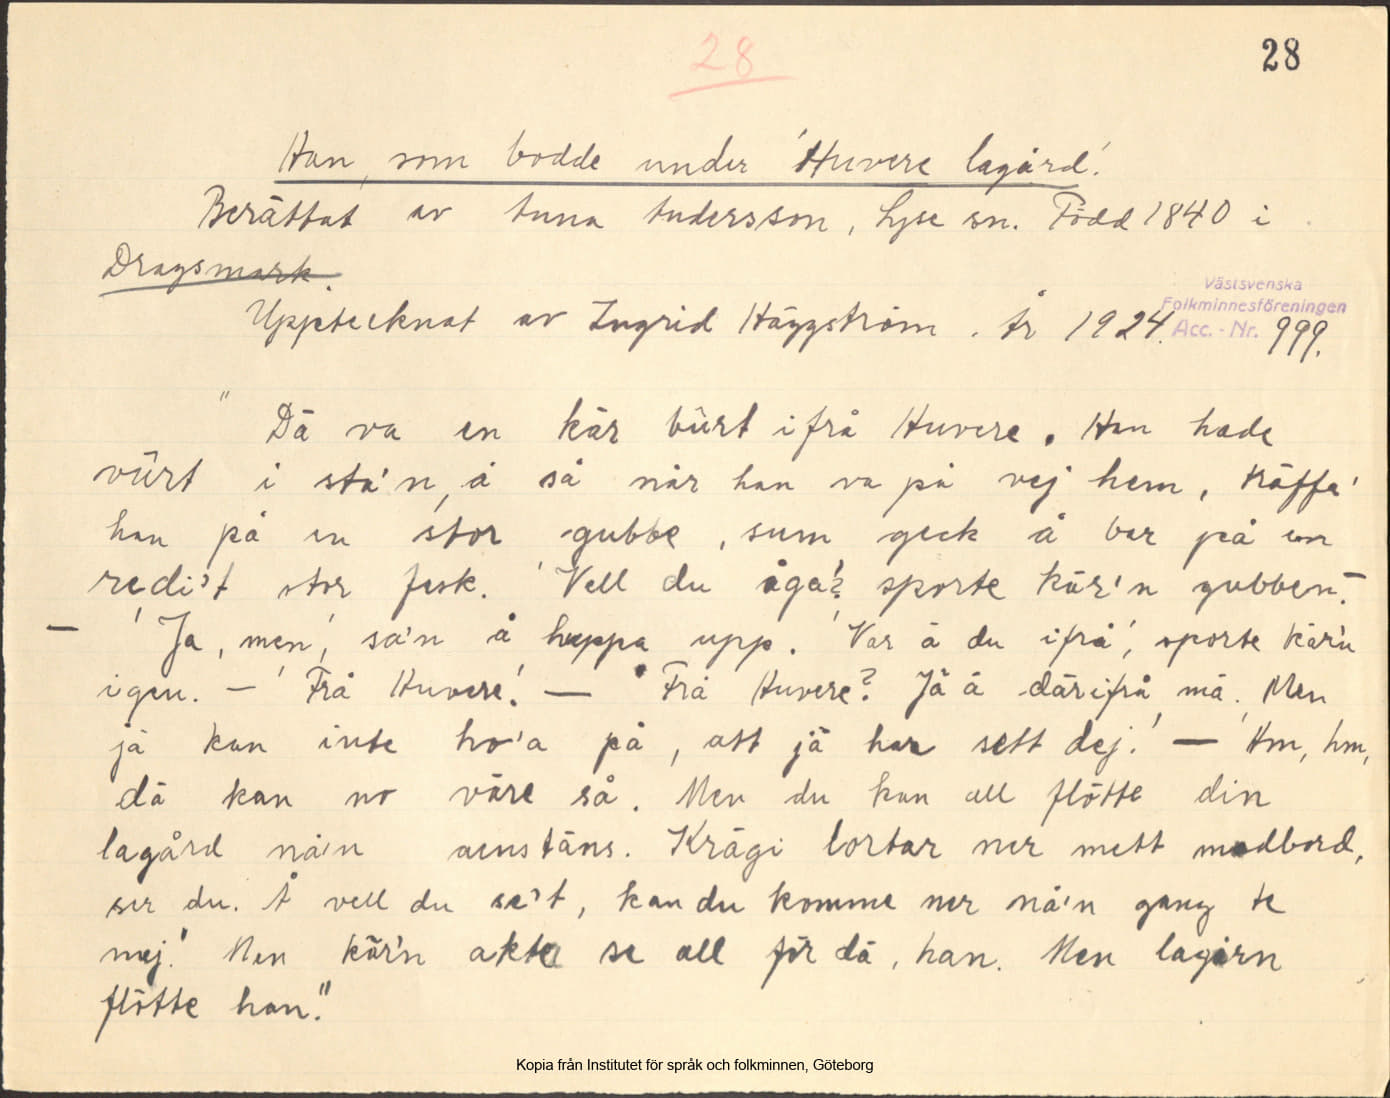 28
28
Han, som bodde under 'Huvere lagård'.
Berättat av Anna Andersson, Lyse sn. Född 1840 i
Dragsmark.
Upptecknat av Ingrid Häggström. År 1924.
Västsvenska
Folkminnesföreningen
Acc. - Nr. 999.
"Dä va en kär bûrt ifrå Huvere. Han hade
vûrt i sta'n, å så når han va på vej hem, träffa'
han på en stor gubbe, sum geck å bar på en
redi't stor fesk. 'Vell du åga'? sporte kär'n gubben. —
— 'Ja, men', sa'n å huppa upp. 'Var ä du ifrå', sporte kär'n
igen. — 'Frå Huvere'. — 'Frå Huvere? Jä ä därifrå mä. Men
jä kan inte ho'a på, att jä har sett dej.' — 'Hm, hm,
dä kan no väre så. Men du kan all flötte din
lagård nå'n aenstäns. Krägi lortar ner mett madbord,
ser du. Å vell du se't, kan du komme ner nå'n gang te
mej.' Men kär'n akta se all för dä, han. Men lagårn
flötte han."
Kopia från Institutet för språk och folkminnen, Göteborg